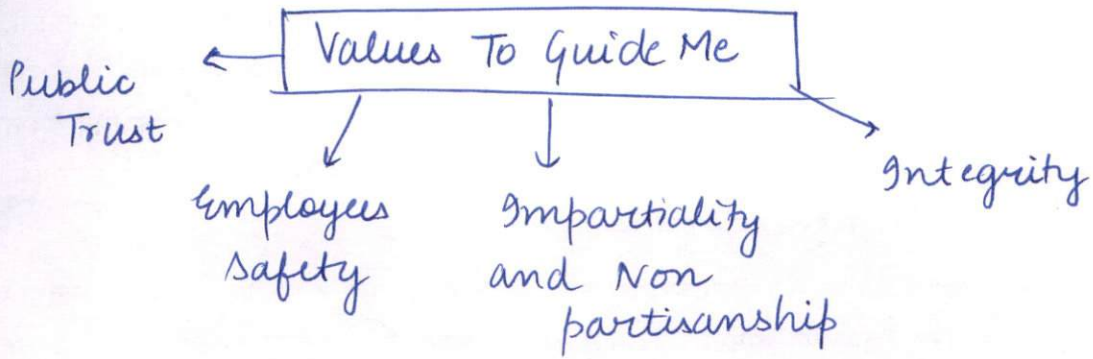 Values To Guide Me
Public
Trust
Employees
Safety
Impartiality
and Non
partisanship
Integrity